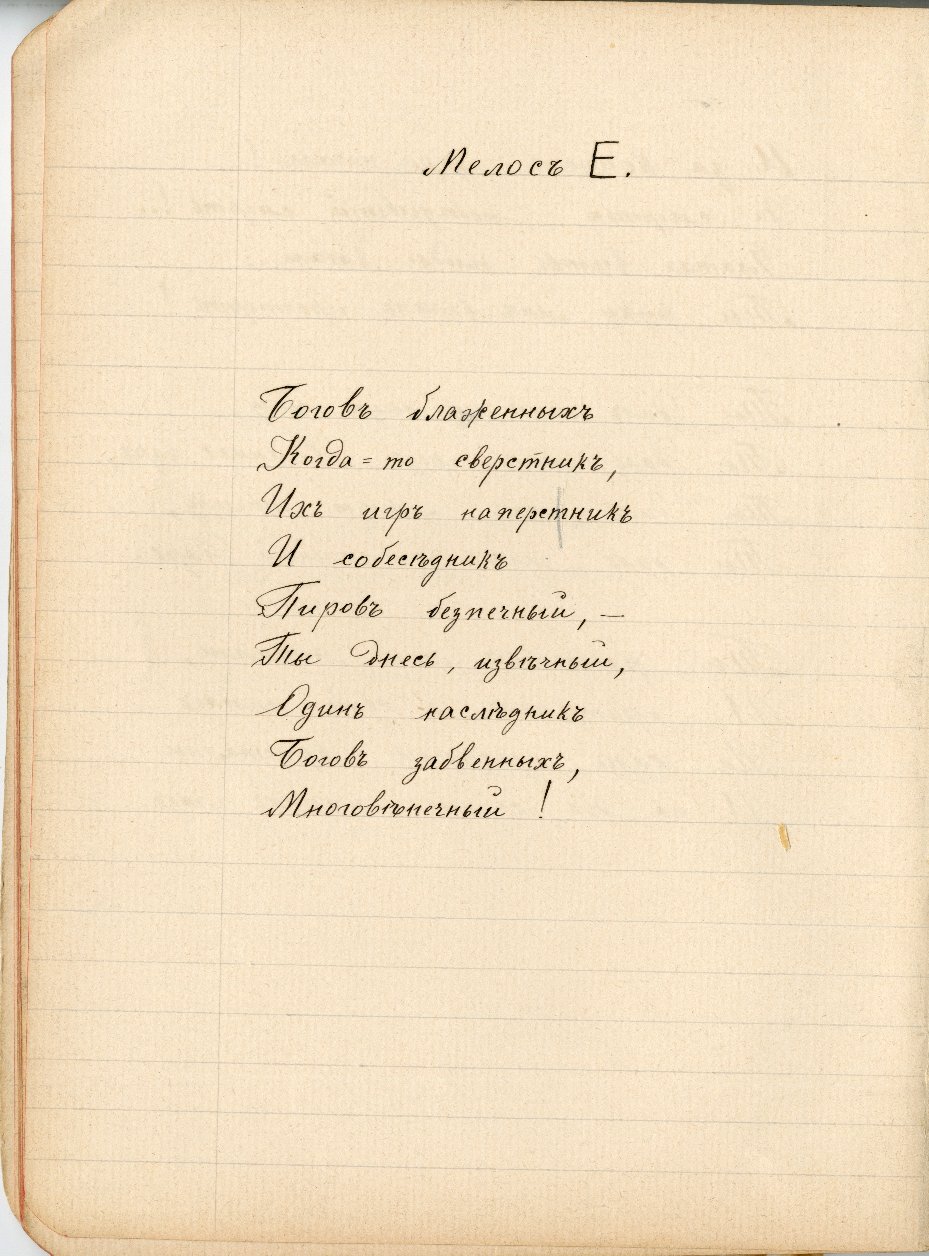 Мелосъ Е.
Боговъ блаженныхъ
Когда=то сверстникъ,
Ихъ игръ наперстникъ
И собесѣдникъ
Пировъ безпечный, —
Ты днесь, извѣчный,
Одинъ наслѣдникъ
Боговъ забвенныхъ,
Многовѣнечный!